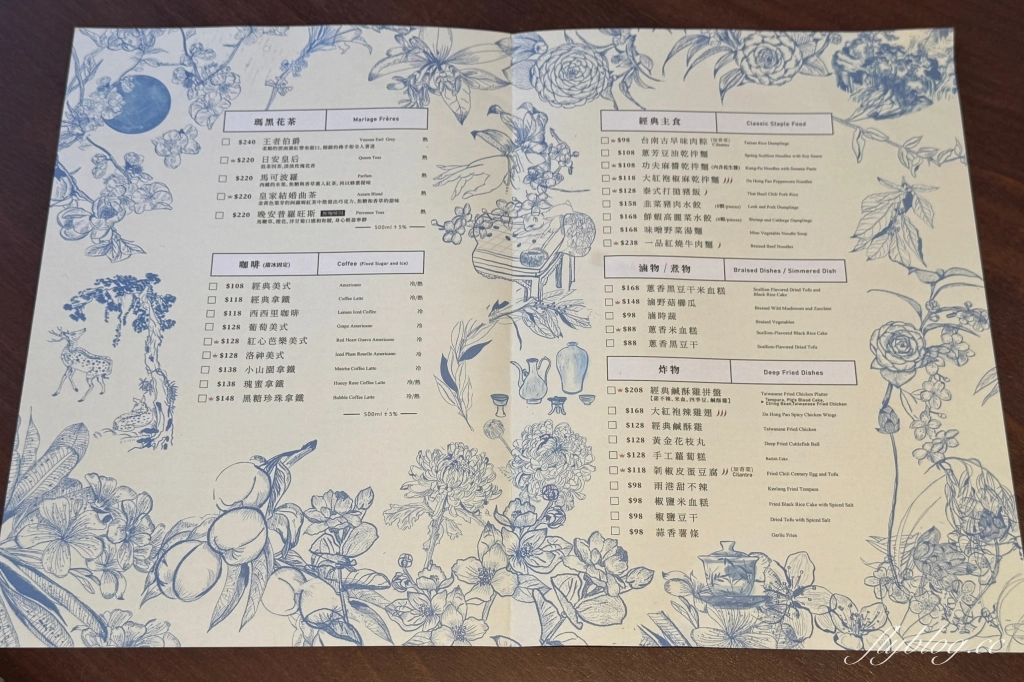 瑪黑花茶 Mariage Frères
$240 王者伯爵 Yunnan Earl Grey 熱
$220 日安皇后 Queen Teas 熱
$220 馬可波羅 Parfum 熱
$220 皇家結婚曲茶 Assam Blend 熱
$220 晚安普羅旺斯 Provence Teas 熱
500ml±5%
咖啡 (糖冰固定) Coffee (Fixed Sugar and Ice)
$108 經典美式 Americano 冷/熱
$118 經典拿鐵 Coffee Latte 冷/熱
$118 西西里咖啡 Lemon Iced Coffee 冷
$128 葡萄美式 Grape Americano 冷
$128 紅心芭樂美式 Red Heart Guava Americano 冷
$128 洛神美式 Iced Plant Roselle Americano 冷
$138 小山園拿鐵 Matcha Coffee Latte 冷
$138 瑰蜜拿鐵 Honey Rose Coffee Latte 冷/熱
$148 黑糖珍珠拿鐵 Bubble Coffee Latte 冷/熱
500ml±5%
經典主食 Classic Staple Food
$98 台南古早味肉粽 (加香菜) Cilantro Tainan Rice Dumplings
$108 蔥芳豆油乾拌麵 Spring Scallion Noodles with Soy Sauce
$108 功夫麻醬乾拌麵 (內含花生粉) Kung Fu Noodles with Sesame Paste
$118 大紅袍椒麻乾拌麵 Da Hong Pao Peppercorn Noodles
$128 泰式打拋豬飯 Thai Basil Chili Pork Rice
$158 韭菜豬肉水餃 Leek and Pork Dumplings
$168 鮮蝦高麗菜水餃 Shrimp and Cabbage Dumplings
$168 味噌野菜湯麵 Miso Vegetable Noodle Soup
$238 一品紅燒牛肉麵 Braised Beef Noodles
滷物/煮物 Braised Dishes / Simmered Dish
$168 蔥香黑豆干米血糕 Scallion-Flavored Dried Tofu and
Black Rice Cake
$148 滷野菇櫛瓜 Braised Wild Mushroom and Zucchini
$98 滷時蔬 Braised Vegetables
$88 蔥香米血糕 Scallion-Flavored Black Rice Cake
$88 蔥香黑豆干 Scallion-Flavored Dried Tofu
炸物 Deep Fried Dishes
$208 經典鹹酥雞拼盤 Taiwanese Fried Chicken Platter
【甜不辣、米血、四季豆、鹹酥雞】
$168 大紅袍辣雞翅 Da Hong Pao Spicy Chicken Wings
$128 經典鹹酥雞 Taiwanese Fried Chicken
$128 黃金花枝丸 Deep Fried Cuttlefish Ball
$128 手工蘿蔔糕 Radish Cake
$118 剁椒皮蛋豆腐 (加香菜) Cilantro Fried Chili Century Egg and Tofu
$98 雨港甜不辣 Keelung Fried Tempura
$98 椒鹽米血糕 Fried Black Rice Cake with Spiced Salt
$98 椒鹽豆干 Dried Tofu with Spiced Salt
$98 蒜香薯條 Garlic Fries
flyblog.cc